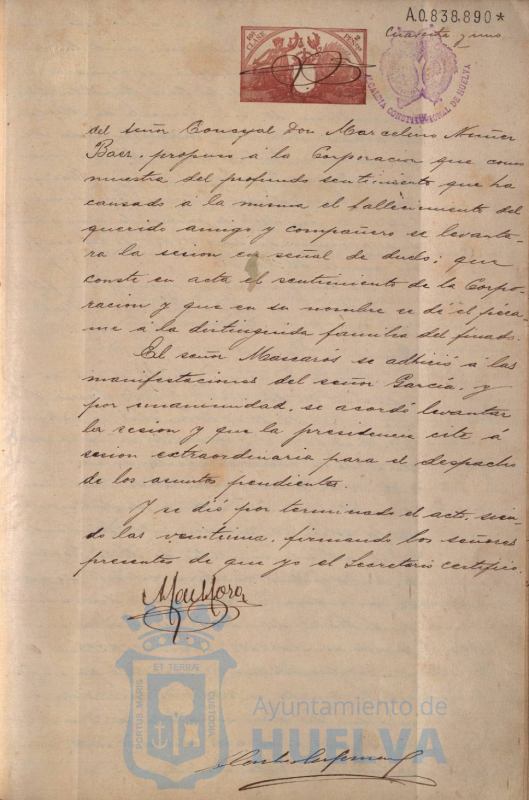 A.0.838.890*
Cuarenta y uno
10ª CLASE
2 PESOS
ALCALDIA CONSTITUCIONAL DE HUELVA
del señor Concejal Don Marcelino Nuñez
Baez, propuso á la Corporacion que como
muestra del profundo sentimiento que ha
causado á la misma el fallecimiento del
querido amigo y compañero se levanta-
ra la sesion en señal de duelo; que
conste en acta el sentimiento de la Corpo-
racion y que en su nombre se dé el pésa-
me á la distinguida familia del finado.
El señor Mascaros se adhirió á las
manifestaciones del señor García, y
por unanimidad, se acordó levantar
la sesion y que la presidencia cite á
sesion extraordinaria para el despacho
de los asuntos pendientes.
Y se dió por terminado el acto, sien-
do las veintiuna, firmando los señores
presentes de que yo el Secretario certifico.
Mora
PORTUS MARIS ET TERRÆ CUSTODIA
Ayuntamiento de
HUELVA